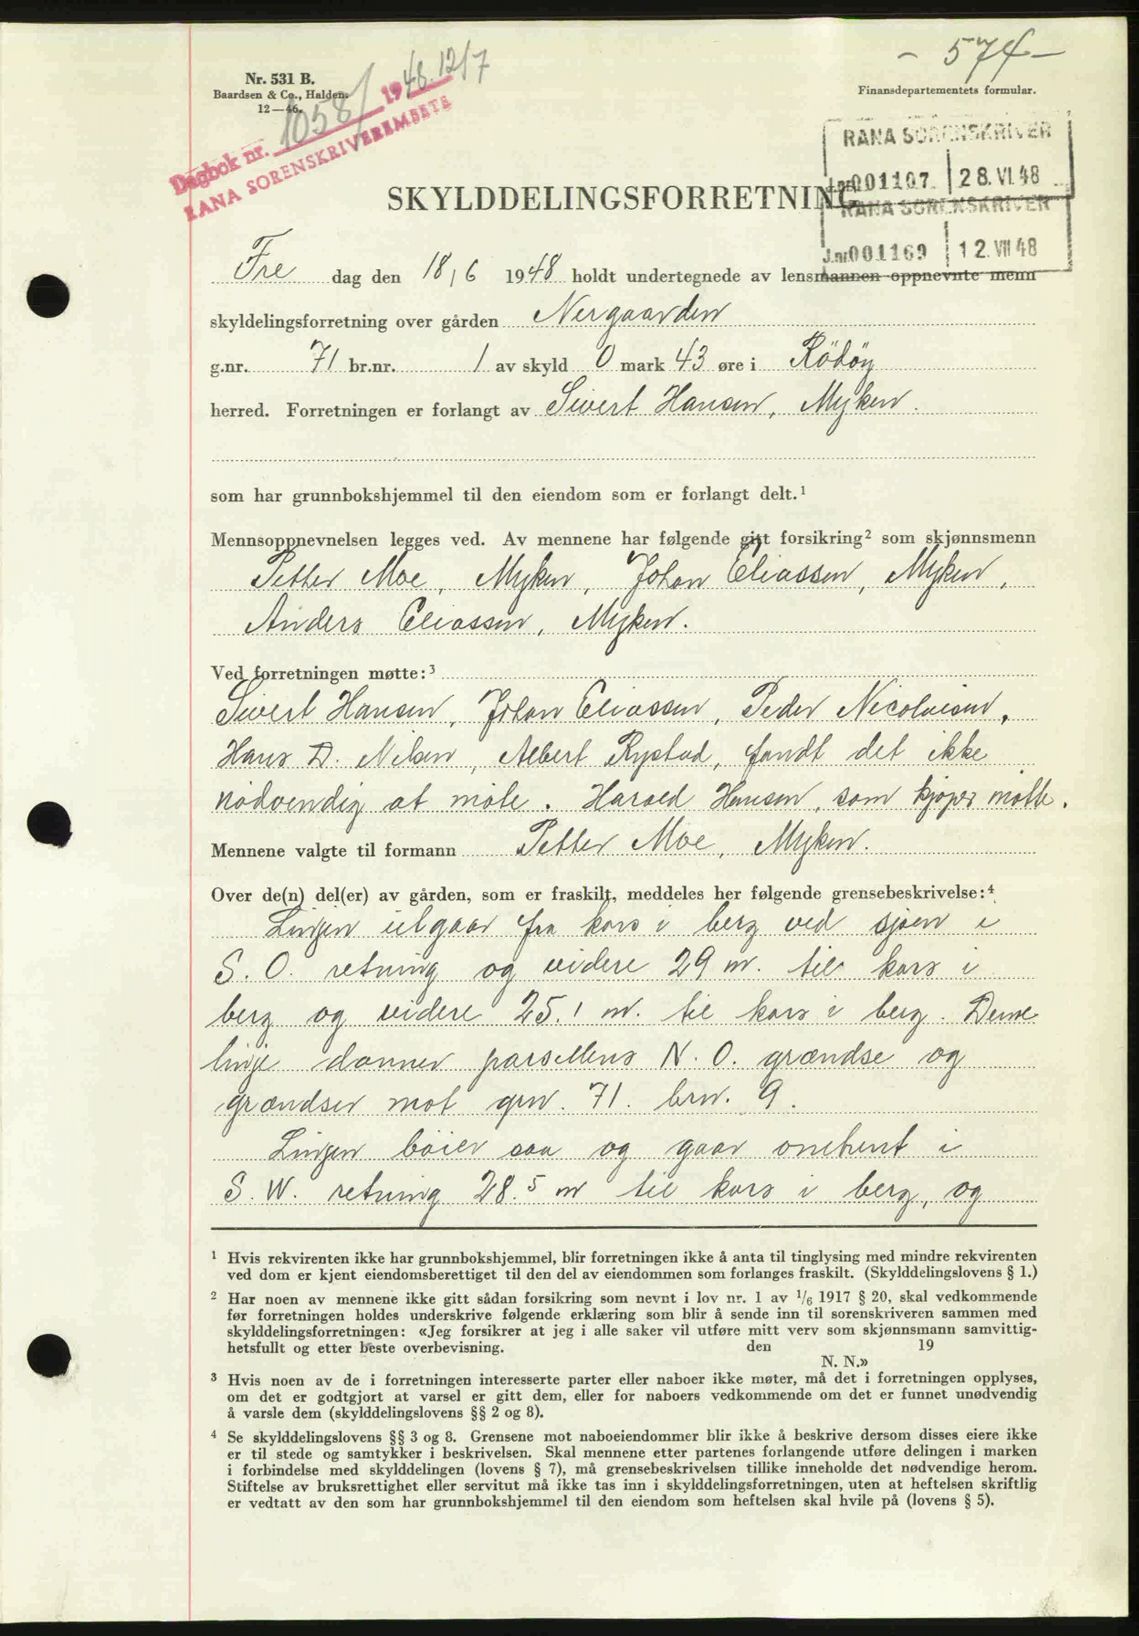 - 574 -
Nr. 531 B.
Baardsen & Co., Halden.
12—46.
Finansdepartementets formular.
Dagbok nr. 1058/ 1948. 12/7
RANA SORENSKRIVEREMBETE
RANA SORENSKRIVER
J.nr. 001107 28. VI. 48
RANA SORENSKRIVER
J.nr. 001169 12. VII 48
SKYLDDELINGSFORRETNING
Fre dag den 18/6 1948 holdt undertegnede av lensmannen oppnevnte menn
skyldelingsforretning over gården Nergaarden
g.nr. 71 br.nr. 1 av skyld 0 mark 43 øre i Rödöy
herred. Forretningen er forlangt av Sivert Hansen, Myken.
som har grunnbokshjemmel til den eiendom som er forlangt delt.¹
Mennsoppnevnelsen legges ved. Av mennene har følgende gitt forsikring² som skjønnsmenn
Petter Moe, Myken, Johan Eliassen, Myken,
Anders Eliassen, Myken.
Ved forretningen møtte:³
Sivert Hansen, Johan Eliassen, Peder Nicolaisen,
Hans D. Nilsen, Albert Rystad, fandt det ikke
nödvendig at möte. Harald Hansen, som kjøper mötte.
Mennene valgte til formann Petter Moe, Myken.
Over de(n) del(er) av gården, som er fraskilt, meddeles her følgende grensebeskrivelse:⁴
Linjen utgaar fra kors i berg ved sjøen i
S. O. retning og videre 29 m. til kors i
berg og videre 25.1 m. til kors i berg. Denne
linje danner parsellens N. O. grændse og
grændser mot grn. 71. brn. 9.
Linjen böier saa og gaar omtrent i
S. W. retning 28.5 m til kors i berg, og
¹ Hvis rekvirenten ikke har grunnbokshjemmel, blir forretningen ikke å anta til tinglysing med mindre rekvirenten
ved dom er kjent eiendomsberettiget til den del av eiendommen som forlanges fraskilt. (Skylddelingslovens § 1.)
² Har noen av mennene ikke gitt sådan forsikring som nevnt i lov nr. 1 av 1/6 1917 § 20, skal vedkommende
før forretningen holdes underskrive følgende erklæring som blir å sende inn til sorenskriveren sammen med
skylddelingsforretningen: «Jeg forsikrer at jeg i alle saker vil utføre mitt verv som skjønnsmann samvittig-
hetsfullt og etter beste overbevisning. den 19
N. N.»
³ Hvis noen av de i forretningen interesserte parter eller naboer ikke møter, må det i forretningen opplyses,
om det er godtgjort at varsel er gitt dem, eller for naboers vedkommende om det er funnet unødvendig
å varsle dem (skylddelingslovens §§ 2 og 8).
⁴ Se skylddelingslovens §§ 3 og 8. Grensene mot naboeiendommer blir ikke å beskrive dersom disses eiere ikke
er til stede og samtykker i beskrivelsen. Skal mennene etter partenes forlangende utføre delingen i marken
i forbindelse med skylddelingen (lovens § 7), må grensebeskrivelsen tillike inneholde det nødvendige herom.
Stiftelse av bruksrettighet eller servitut må ikke tas inn i skylddelingsforretningen, uten at heftelsen skriftlig
er vedtatt av den som har grunnbokshjemmel til den eiendom som heftelsen skal hvile på (lovens § 5).